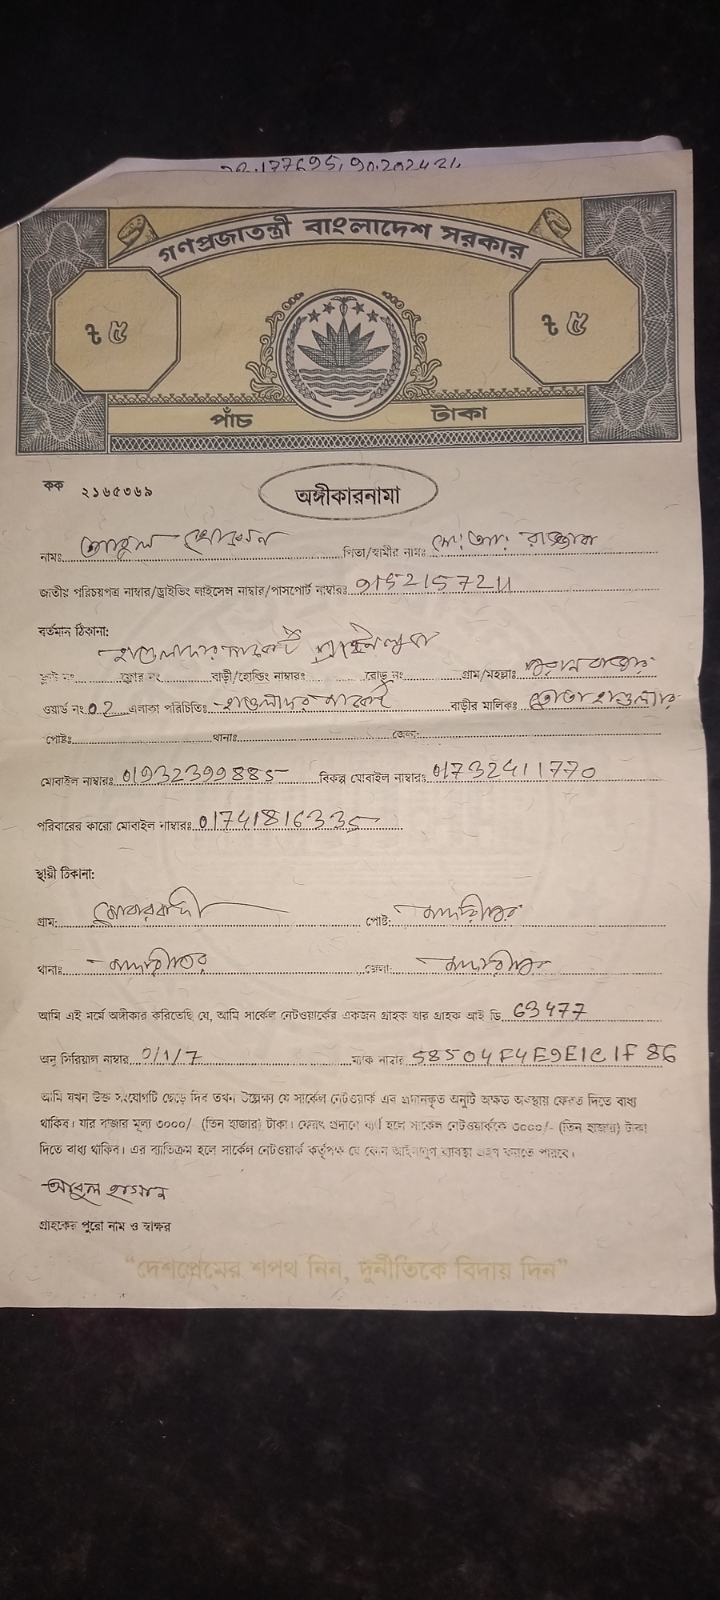 গণপ্রজাতন্ত্রী বাংলাদেশ সরকার
৳ ৫ ৳ ৫
পাঁচ টাকা
কক ২১৬৫৩৬৯
অঙ্গীকারনামা
নামঃ আবুল পিতা/স্বামীর নামঃ মো: আ: রাজ্জাক
জাতীয় পরিচয়পত্র নাম্বার/ড্রাইভিং লাইসেন্স নাম্বার/পাসপোর্ট নাম্বারঃ 9152157211
বর্তমান ঠিকানা:
ফ্লাট নং ফ্লোর নং বাড়ী/হোল্ডিং নাম্বারঃ রোড নং গ্রাম/মহল্লাঃ
ওয়ার্ড নং 02 এলাকা পরিচিতিঃ বাড়ীর মালিকঃ
পোষ্টঃ থানাঃ জেলা:
মোবাইল নাম্বারঃ 01932399885 বিকল্প মোবাইল নাম্বারঃ 01732411770
পরিবারের কারো মোবাইল নাম্বারঃ 01741816335
স্থায়ী ঠিকানা:
গ্রাম: পোষ্ট: মাদারীপুর
থানাঃ মাদারীপুর জেলা: মাদারীপুর
আমি এই মর্মে অঙ্গীকার করিতেছি যে, আমি সার্কেল নেটওয়ার্কের একজন গ্রাহক যার গ্রাহক আই ডি 63477
অনু সিরিয়াল নাম্বার ম্যাক নাম্বার 58504F4E9E1C1F86
আমি যখন উক্ত সংযোগটি ছেড়ে দিব তখন উল্লেক্ষ্য যে সার্কেল নেটওয়ার্ক এর প্রদানকৃত অনুটি অক্ষত অবস্থায় ফেরত দিতে বাধ্য
থাকিব। যার বাজার মূল্য ৩০০০/- (তিন হাজার) টাকা। ফেরৎ প্রদানে ব্যর্থ হলে সার্কেল নেটওয়ার্ককে ৩০০০/- (তিন হাজার) টাকা
দিতে বাধ্য থাকিব। এর ব্যতিক্রম হলে সার্কেল নেটওয়ার্ক কর্তৃপক্ষ যে কোন আইনানুগ ব্যবস্থা গ্রহণ করতে পারবে।
আবুল হাসান
গ্রাহকের পুরো নাম ও স্বাক্ষর
“দেশপ্রেমের শপথ নিন, দুর্নীতিকে বিদায় দিন”